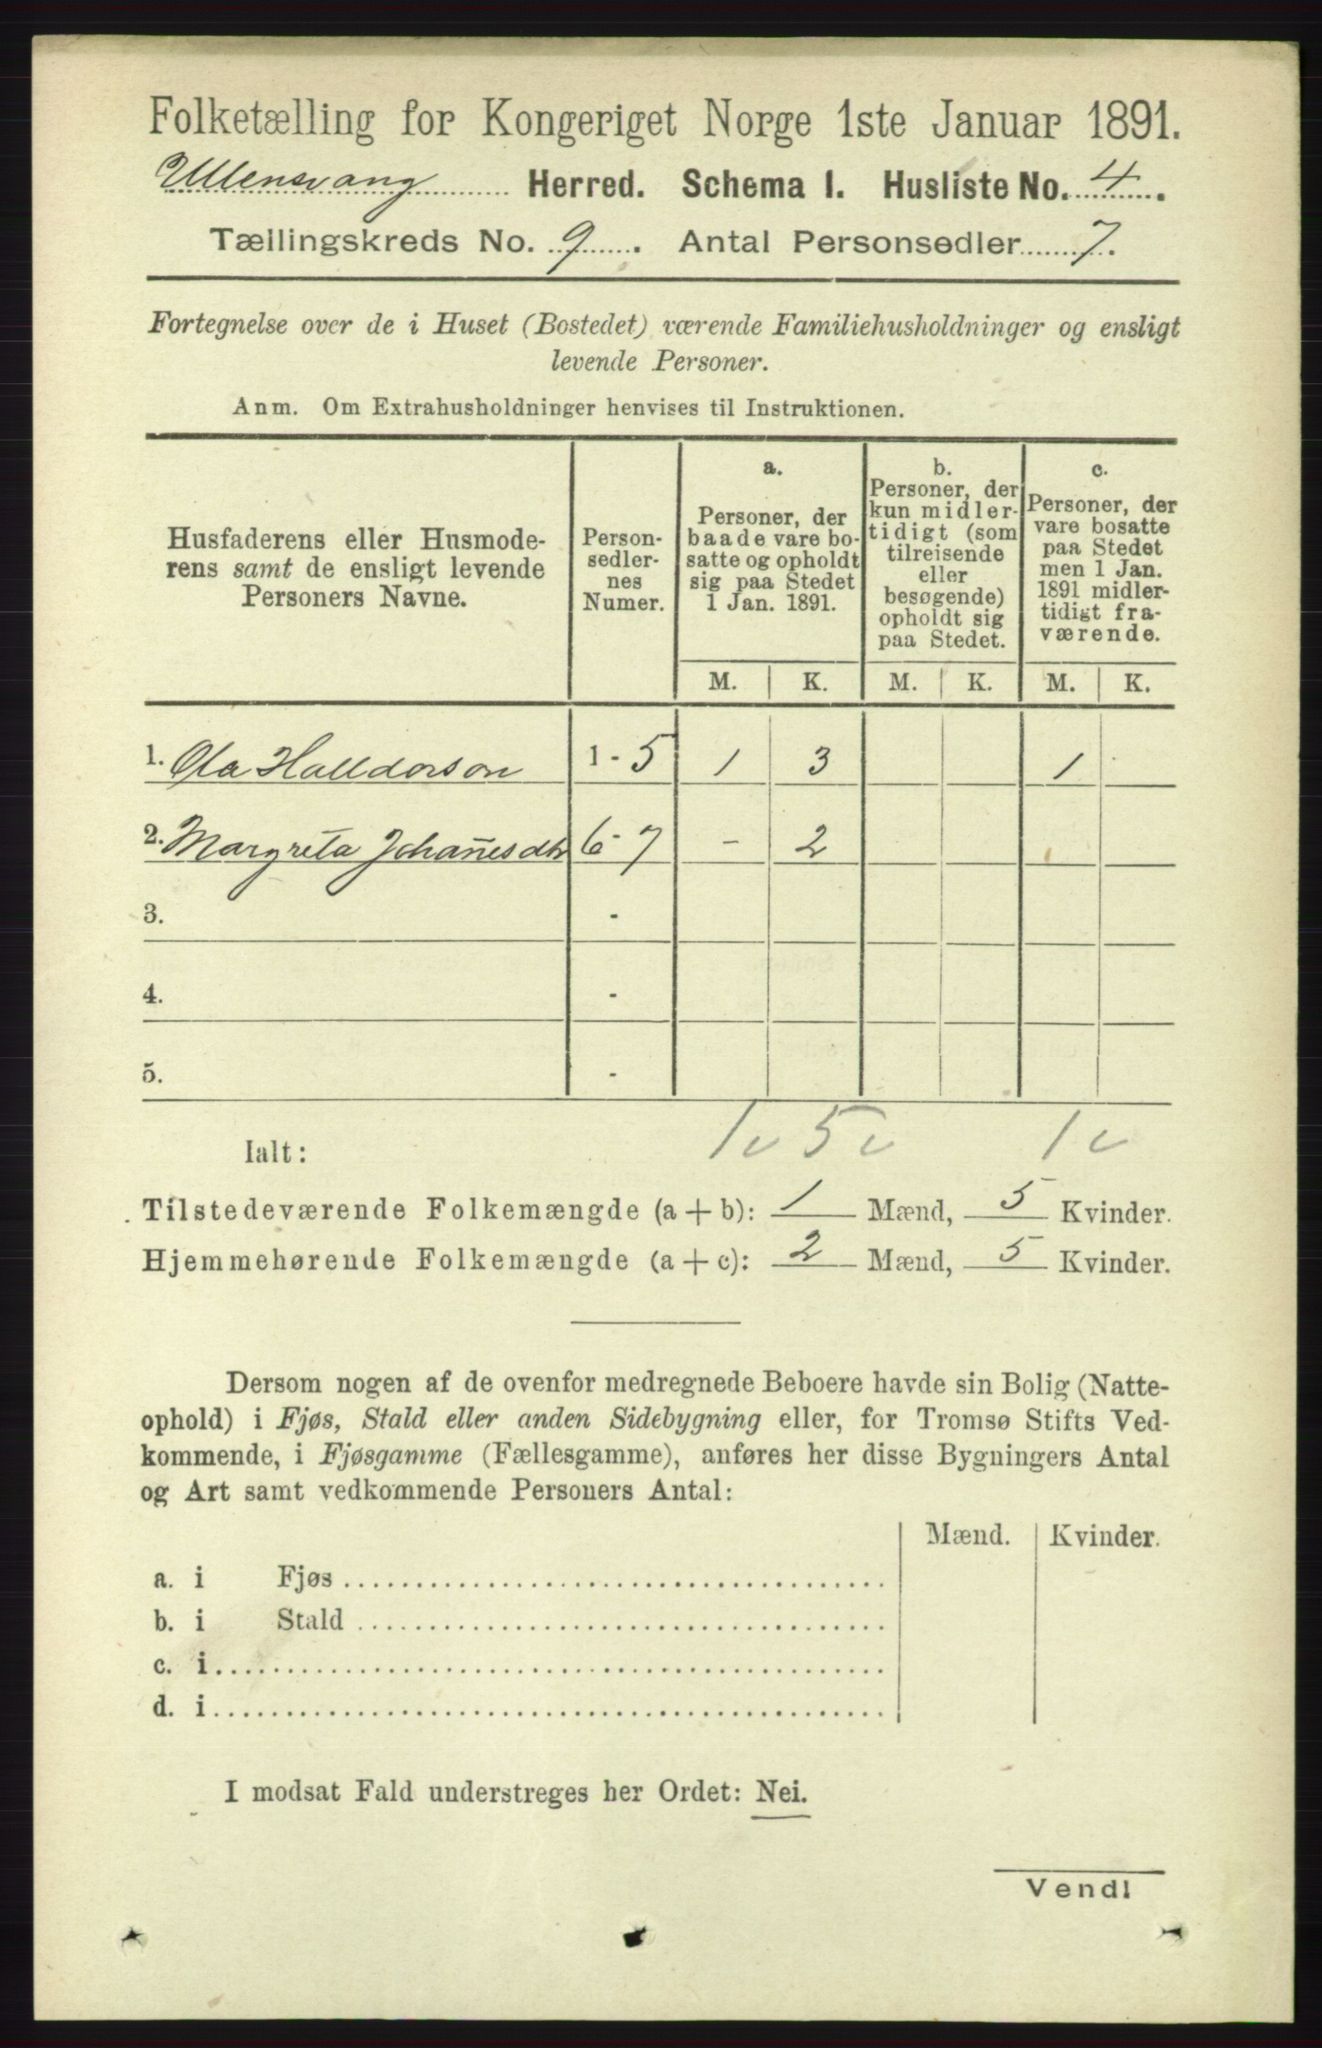 Folketælling for Kongeriget Norge 1ste Januar 1891.
Ullensvang Herred. Schema I. Husliste No. 4.
Tællingskreds No. 9. Antal Personsedler 7.
Fortegnelse over de i Huset (Bostedet) værende Familiehusholdninger og ensligt
levende Personer.
Anm. Om Extrahusholdninger henvises til Instruktionen.
Husfaderens eller Husmode-
rens samt de ensligt levende
Personers Navne.
Person-
sedler-
nes
Numer.
a.
Personer, der
baade vare bo-
satte og opholdt
sig paa Stedet
1 Jan. 1891.
b.
Personer, der
kun midler-
tidigt (som
tilreisende
eller
besøgende)
opholdt sig
paa Stedet.
c.
Personer, der
vare bosatte
paa Stedet
men 1 Jan.
1891 midler-
tidigt fra-
værende.
M. K. M. K. M. K.
1. Ola Halldorson 1 - 5 1 3 1
2. Margreta Johan̄esdtr 6 - 7 - 2
3. -
4. -
5. -
1 5 1
Ialt:
Tilstedeværende Folkemængde (a + b): 1 Mænd, 5 Kvinder.
Hjemmehørende Folkemængde (a + c): 2 Mænd, 5 Kvinder.
Dersom nogen af de ovenfor medregnede Beboere havde sin Bolig (Natte-
ophold) i Fjøs, Stald eller anden Sidebygning eller, for Tromsø Stifts Ved-
kommende, i Fjøsgamme (Fællesgamme), anføres her disse Bygningers Antal
og Art samt vedkommende Personers Antal:
Mænd. Kvinder.
a. i Fjøs
b. i Stald
c. i
d. i
I modsat Fald understreges her Ordet: Nei.
Vend!